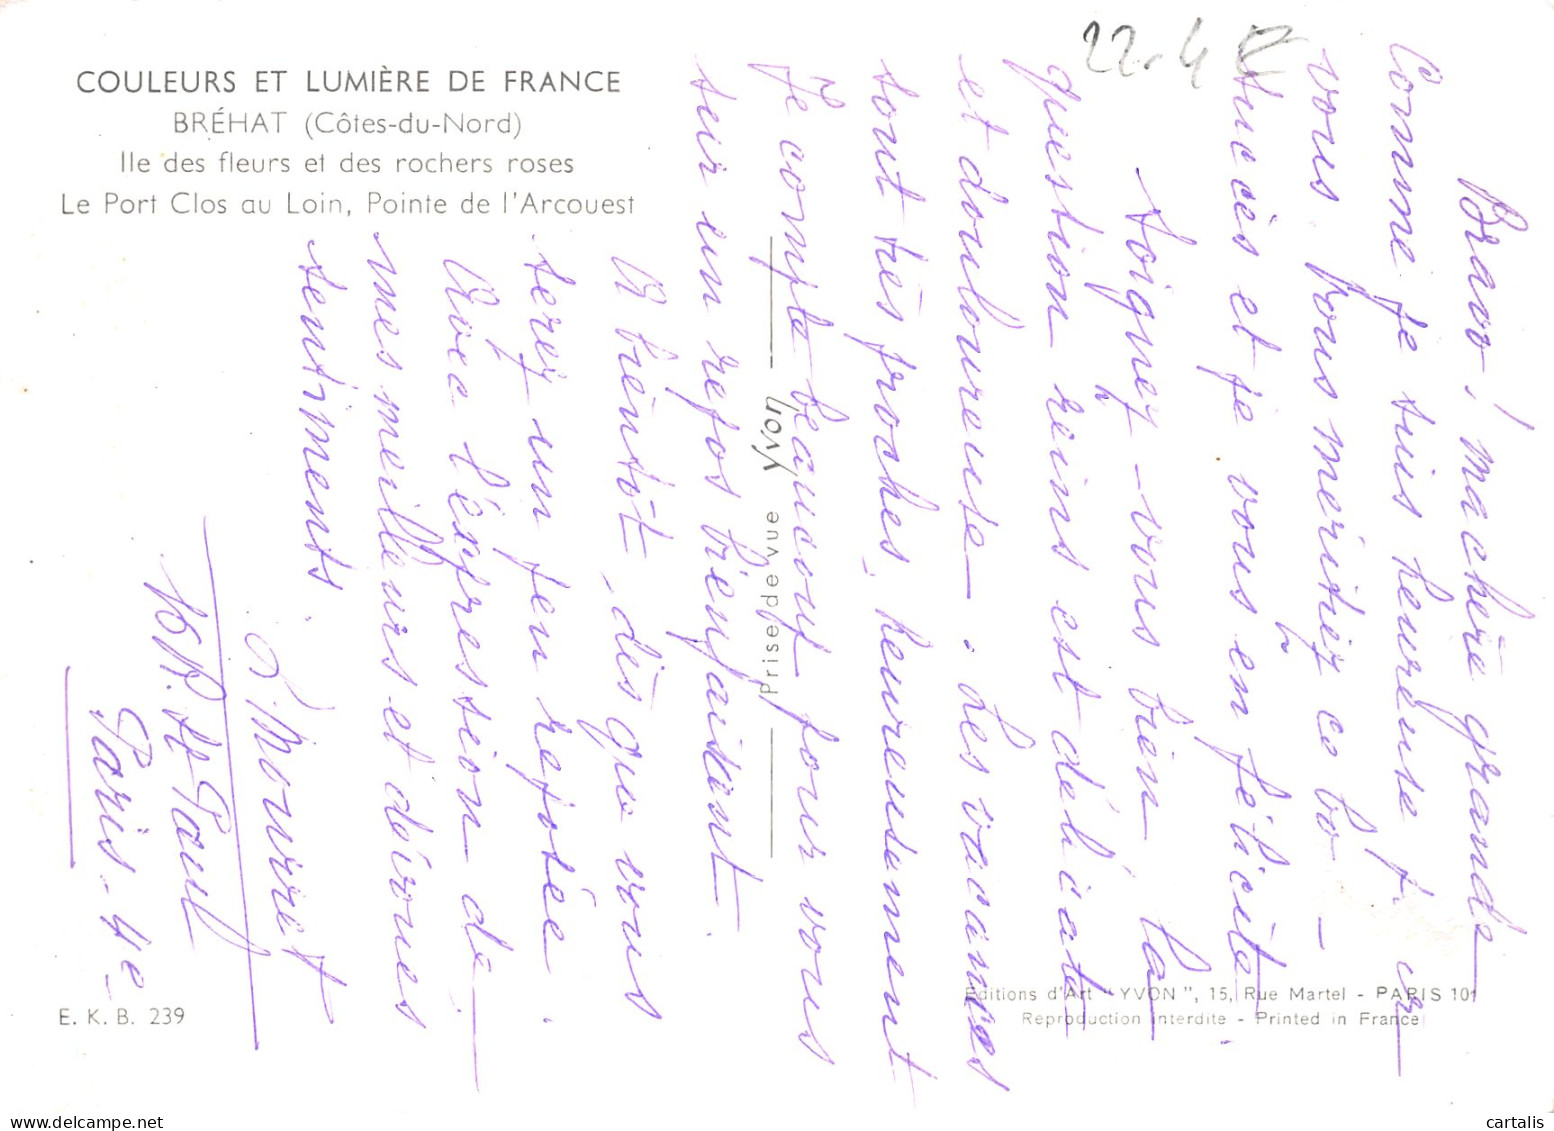 COULEURS ET LUMIÈRE DE FRANCE
BRÉHAT (Côtes-du-Nord)
Ile des fleurs et des rochers roses
Le Port Clos au Loin, Pointe de l'Arcouest
22.4
Bravo ! ma chère grande
Comme je suis heureuse
vous vous méritiez ce
succès et je vous en félicite
Soignez-vous bien la
question reins est délicate
et douloureuse. Les vacances
sont très proches, heureusement
Je compte beaucoup pour vous
sur un repos bienfaisant.
A bientôt, dès que vous
serez un peu reposée.
Avec l'expression de
mes meilleurs et dévoués
sentiments.
Mourret
16 R. St Paul
Paris. 4e
Prise de vue Yvon
E. K. B. 239
Editions d'Art "YVON", 15, Rue Martel - PARIS 10!
Reproduction Interdite - Printed in France
cartalis